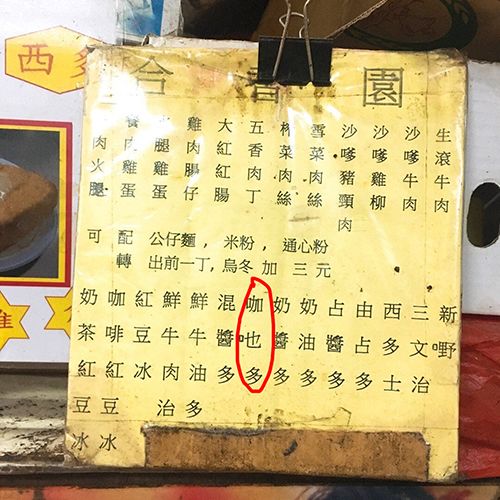 西多
園
生滾牛肉
沙嗲牛肉
沙嗲雞柳
沙嗲豬頸肉
雪菜肉絲
榨菜肉絲
五香肉丁
大紅腸
雞肉腸仔
火腿雞蛋
餐肉雞蛋
肉火腿
可配 公仔麵，米粉，通心粉
轉 出前一丁,烏冬 加 三元
新嘢
三文治
西多士
由占多
占醬多
奶油多
奶醬多
咖吔多
混醬多
鮮牛油多
鮮牛肉治
紅豆冰
咖啡紅豆冰
奶茶紅豆冰